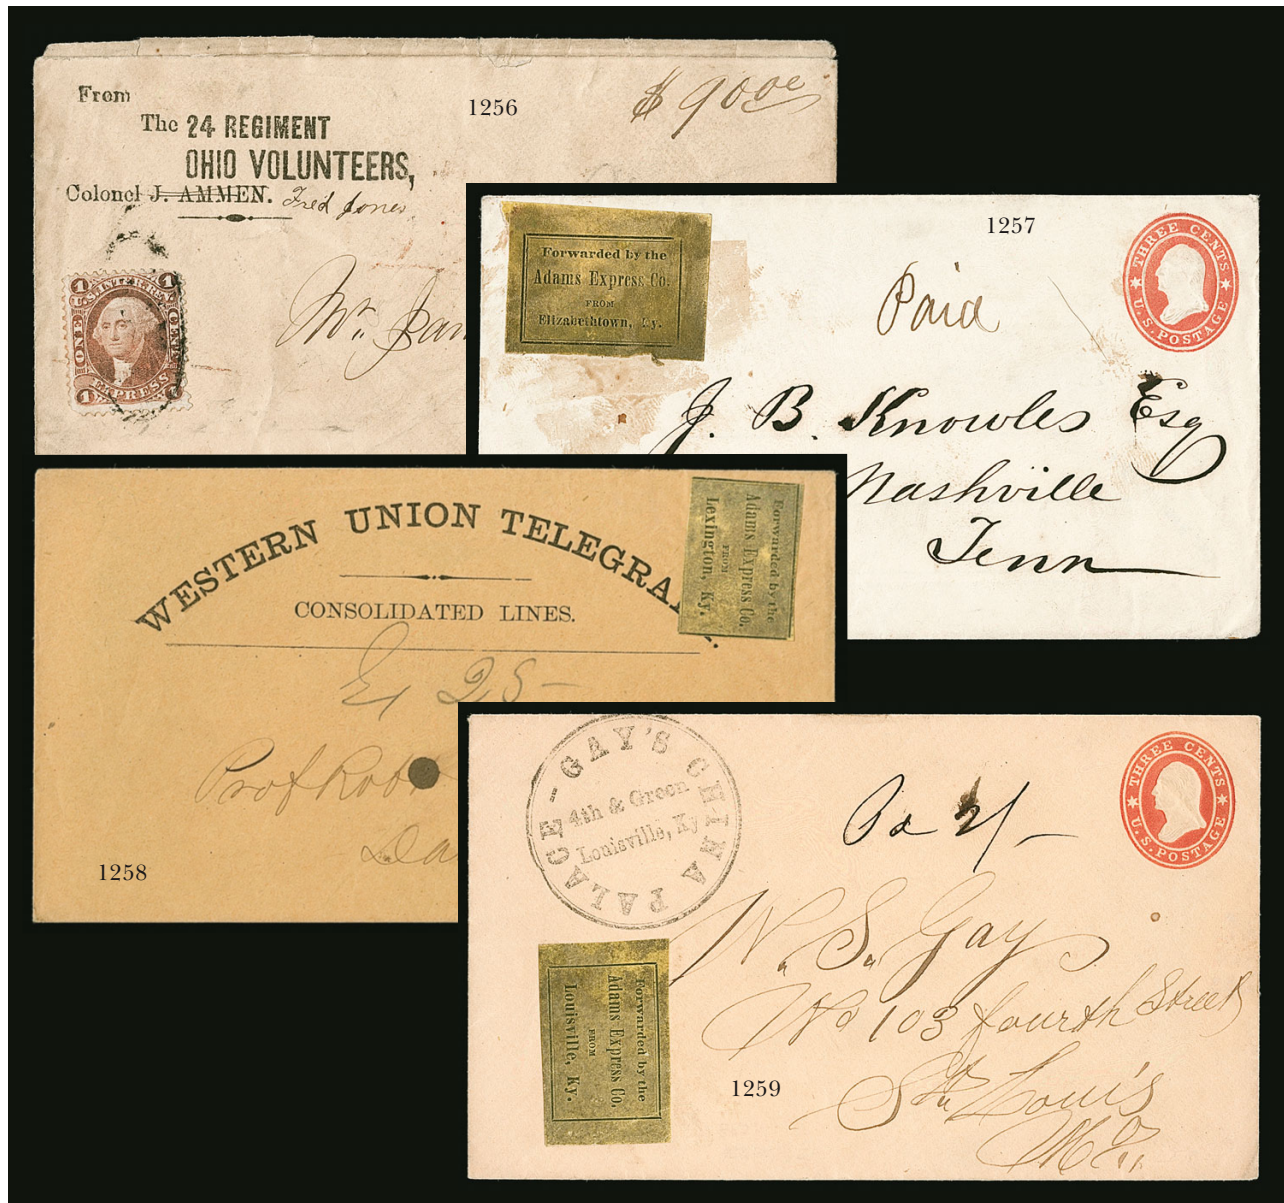 From
The 24 REGIMENT
OHIO VOLUNTEERS,
Colonel J. AMMEN. Fred Jones
1256
$900e
1 U.S. INTER. REV. 1
ONE CENT
1 EXPRESS 1
Mr. Jam
1257
Forwarded by the
Adams Express Co.
FROM
Elizabethtown, Ky.
Paid
THREE CENTS
U.S. POSTAGE
J. B. Knowles Esq
Nashville
Tenn
WESTERN UNION TELEGRA
CONSOLIDATED LINES.
Forwarded by the
Adams Express Co.
FROM
Lexington, Ky.
25-
Prof Rob
Da
1258
GAY'S CHINA PALACE-
4th & Green
Louisville, Ky
Pd 2/-
THREE CENTS
U.S. POSTAGE
W. S. Gay
No 103 fourth Street
St. Louis
Mo.
Forwarded by the
Adams Express Co.
FROM
Louisville, Ky.
1259